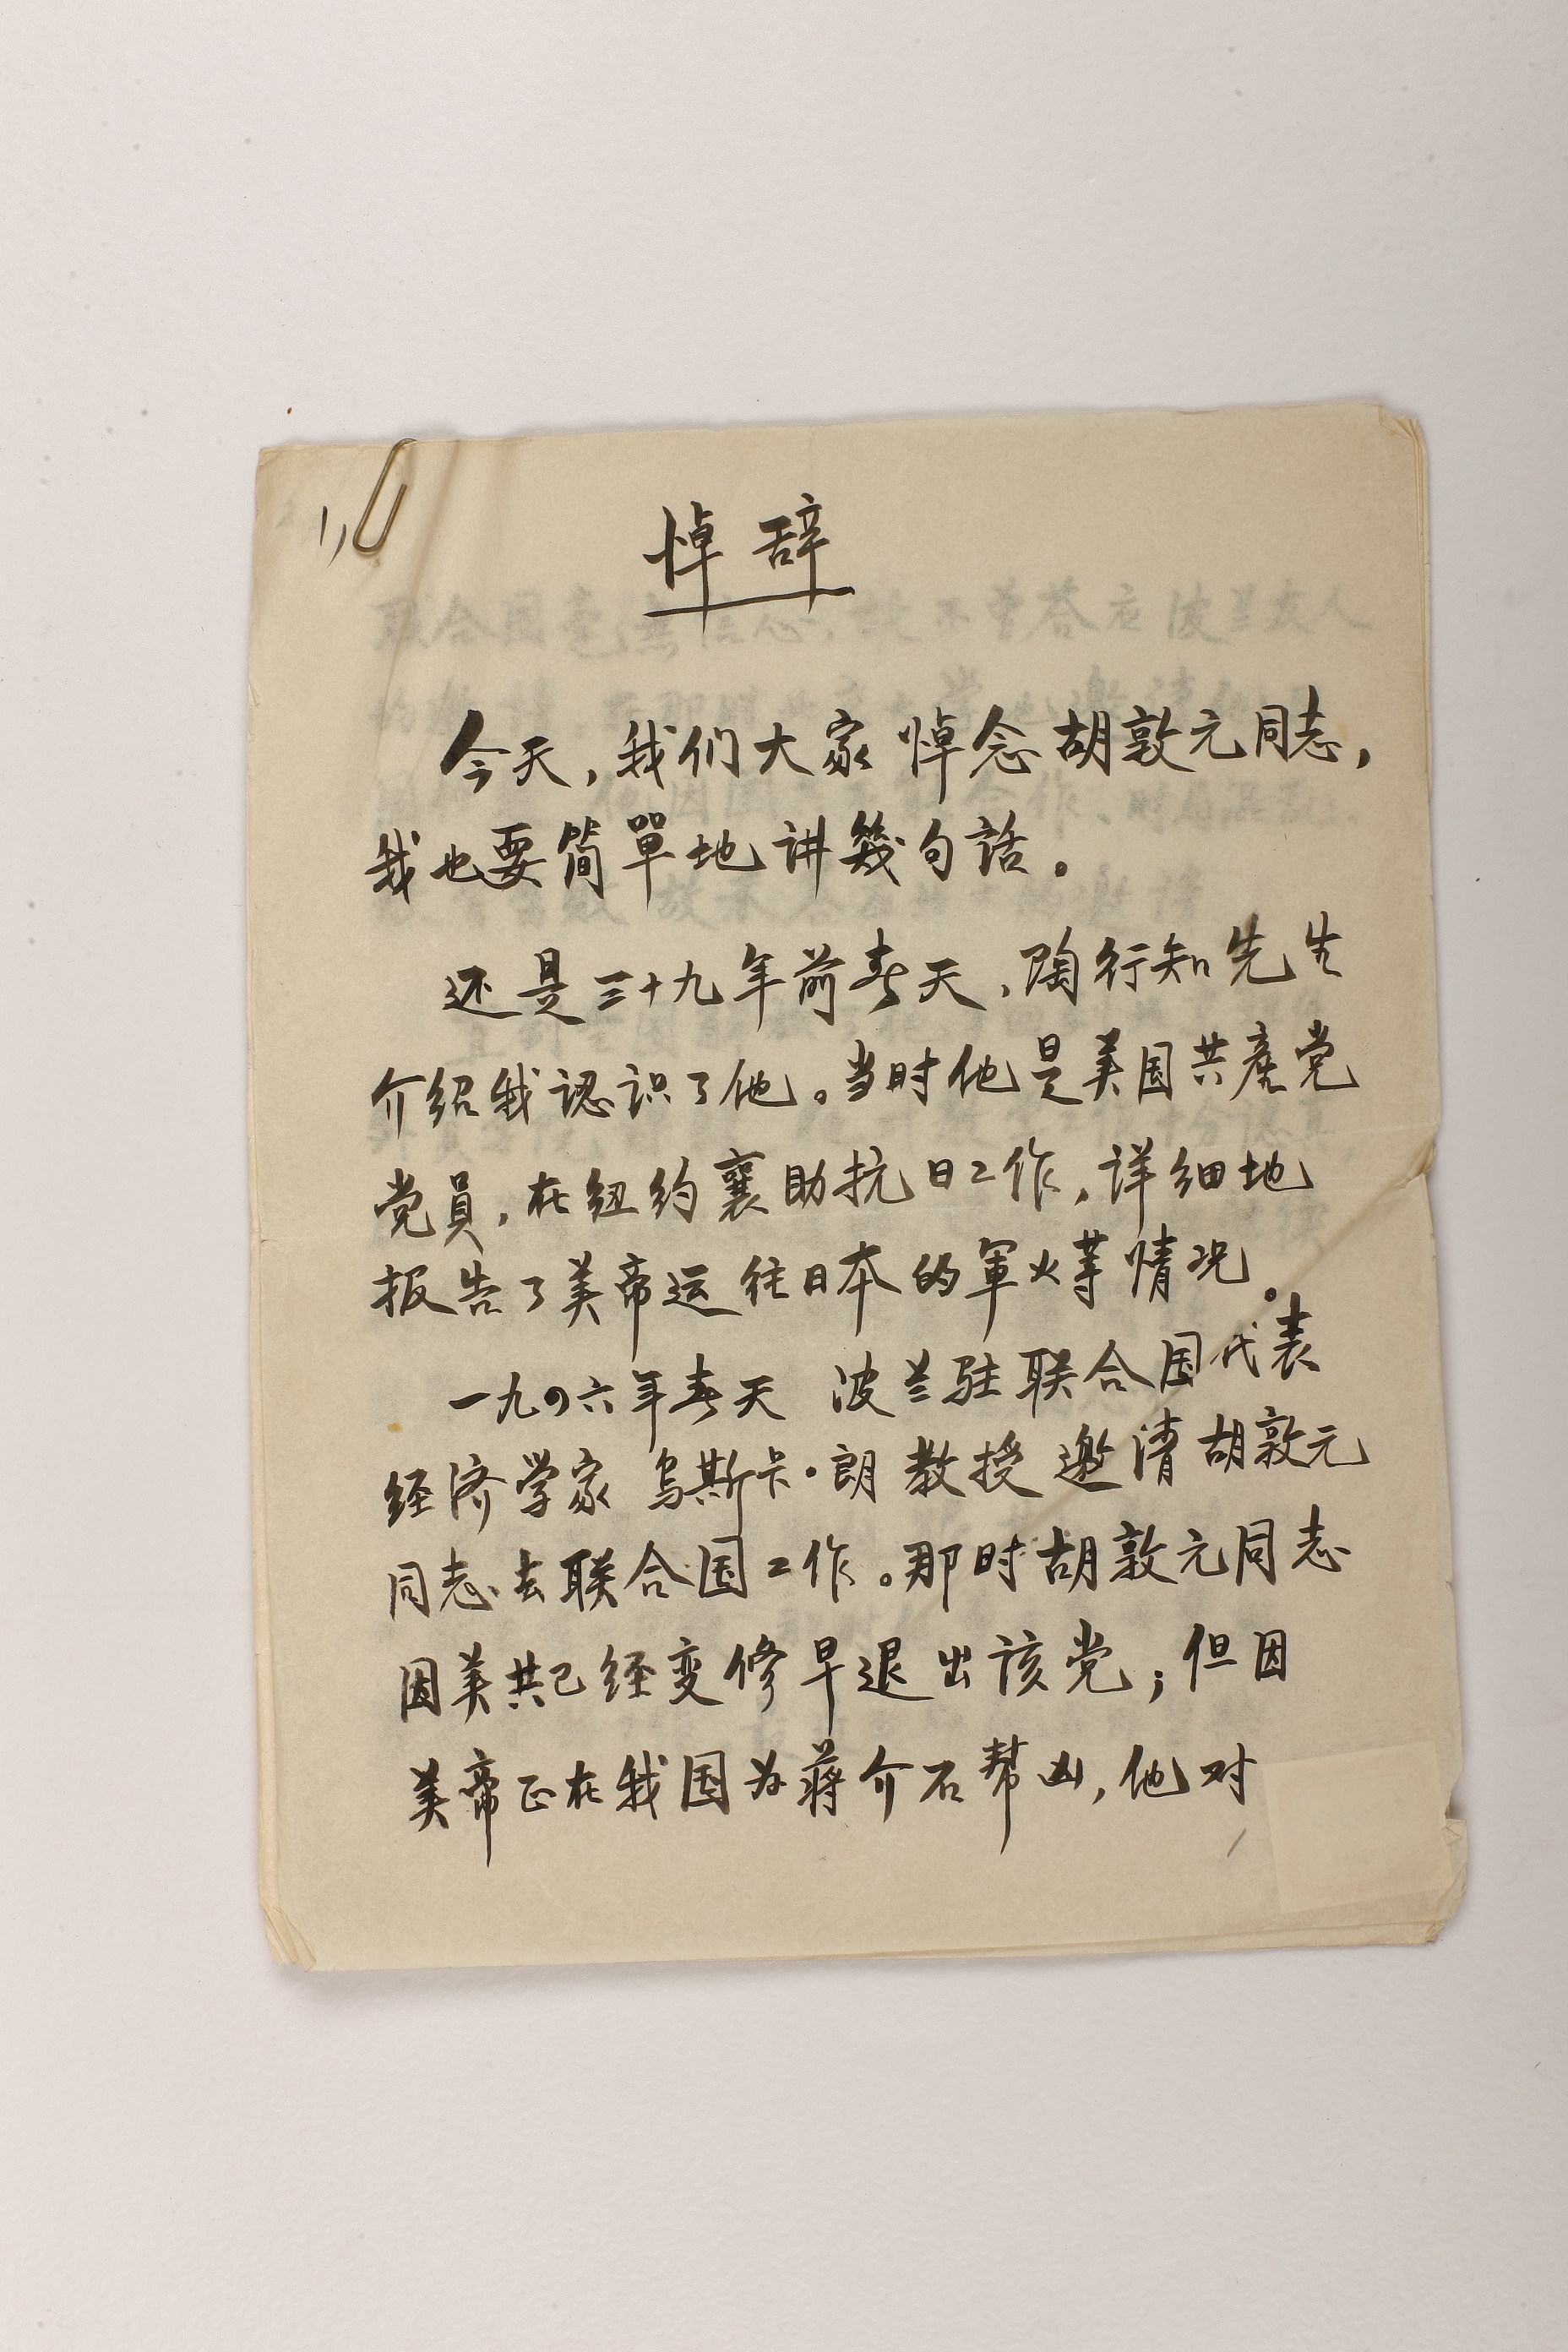 1)
悼辞
今天，我们大家悼念胡敦元同志，
我也要简單地讲幾句話。
还是三十九年前春天，陶行知先生
介绍我認识了他。当时他是美国共產党
党員，在纽约襄助抗日工作，详细地
报告了美帝运往日本的軍火等情况。
一九四六年春天 波兰驻联合国代表
经济学家 乌斯卡·朗教授邀请胡敦元
同志去联合国工作。那时胡敦元同志
因美共已经变修早退出该党；但因
美帝正在我国为蒋介石帮凶，他对